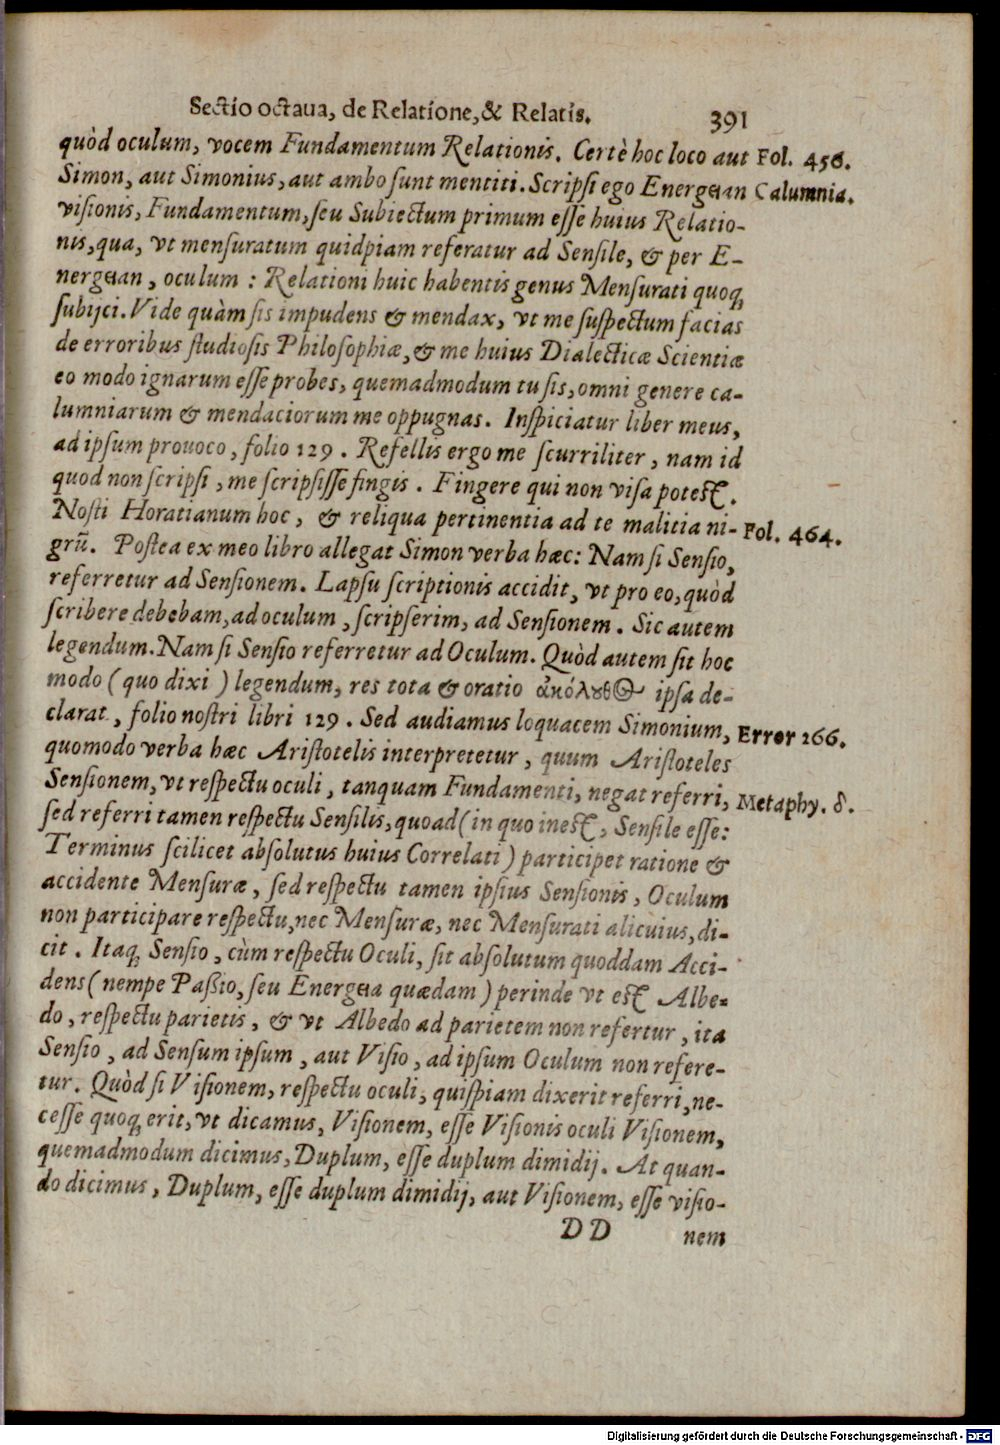 Sectio octaua, de Relatione, & Relatis. 391
quòd oculum, vocem Fundamentum Relationis. Certè hoc loco aut Fol. 456.
Simon, aut Simonius, aut ambo sunt mentiti. Scripsi ego Energeian Calumnia.
visionis, Fundamentum, seu Subiectum primum esse huius Relatio-
nis, qua, vt mensuratum quidpiam referatur ad Sensile, & per E-
nergeian, oculum : Relationi huic habentis genus Mensurati quoq;
subijci. Vide quàm sis impudens & mendax, vt me suspectum facias
de erroribus studiosis Philosophiæ, & me huius Dialecticæ Scientiæ
eo modo ignarum esse probes, quemadmodum tu sis, omni genere ca-
lumniarum & mendaciorum me oppugnas. Inspiciatur liber meus,
ad ipsum prouoco, folio 129. Refellis ergo me scurriliter, nam id
quod non scripsi, me scripsisse fingis. Fingere qui non visa potest.
Nosti Horatianum hoc, & reliqua pertinentia ad te malitia ni- Fol. 464.
grũ. Postea ex meo libro allegat Simon verba hæc: Nam si Sensio,
referretur ad Sensionem. Lapsu scriptionis accidit, vt pro eo, quòd
scribere debebam, ad oculum, scripserim, ad Sensionem. Sic autem
legendum. Nam si Sensio referretur ad Oculum. Quòd autem sit hoc
modo ( quo dixi ) legendum, res tota & oratio ἀκόλουθος ipsa de-
clarat, folio nostri libri 129. Sed audiamus loquacem Simonium, Error 266.
quomodo verba hæc Aristotelis interpretetur, quum Aristoteles
Sensionem, vt respectu oculi, tanquam Fundamenti, negat referri, Metaphy. δ.
sed referri tamen respectu Sensilis, quoad ( in quo inest, Sensile esse:
Terminus scilicet absolutus huius Correlati ) participet ratione &
accidente Mensuræ, sed respectu tamen ipsius Sensionis, Oculum
non participare respectu, nec Mensuræ, nec Mensurati alicuius, di-
cit. Itaq; Sensio, cùm respectu Oculi, sit absolutum quoddam Acci-
dens ( nempe Passio, seu Energeia quædam ) perinde vt est Albe-
do, respectu parietis, & vt Albedo ad parietem non refertur, ita
Sensio, ad Sensum ipsum, aut Visio, ad ipsum Oculum non refere-
tur. Quòd si Visionem, respectu oculi, quispiam dixerit referri, ne-
cesse quoq; erit, vt dicamus, Visionem, esse Visionis oculi Visionem,
quemadmodum dicimus, Duplum, esse duplum dimidij. At quan-
do dicimus, Duplum, esse duplum dimidij, aut Visionem, esse visio-
DD nem
Digitalisierung gefördert durch die Deutsche Forschungsgemeinschaft - DFG